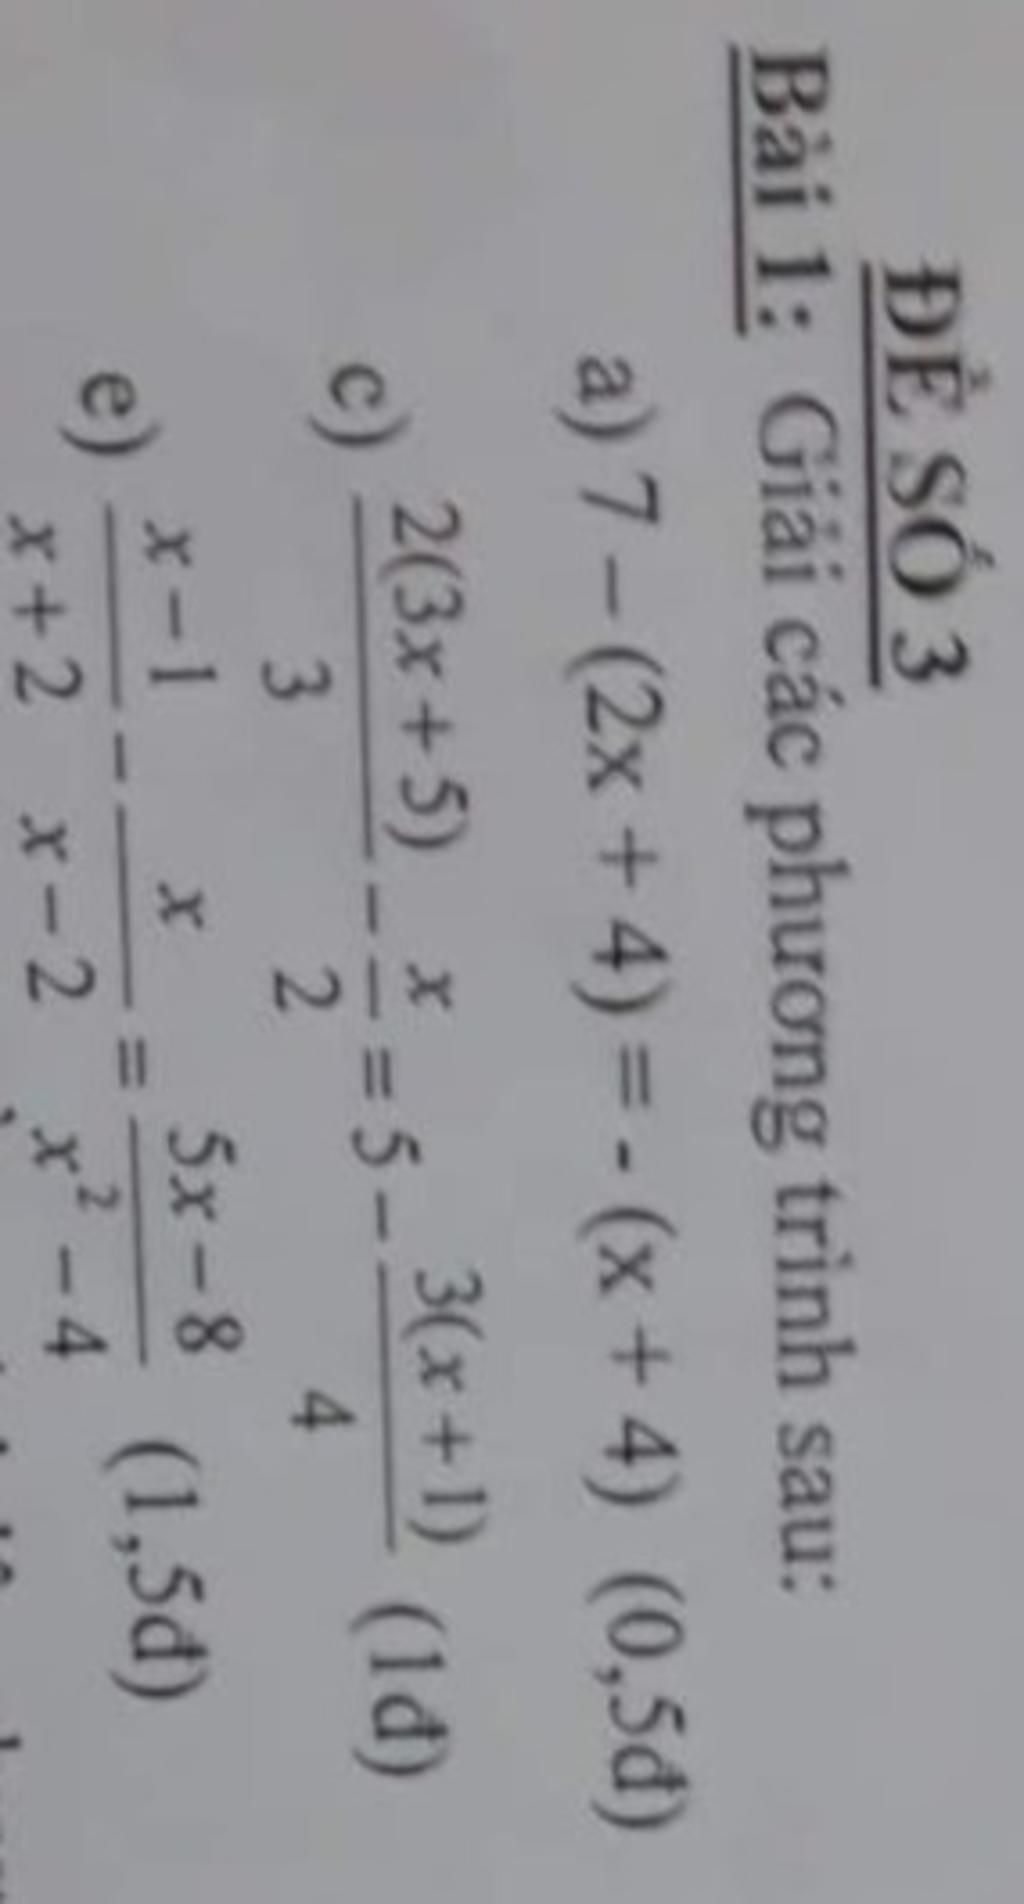 ĐỀ SỐ 3
Bài 1: Giải các phương trình sau:
a) 7 – (2x + 4) = - (x + 4) (0,5đ)
c) 2(3x + 5)/3 - x/2 = 5 - 3(x + 1)/4 (1đ)
e) (x - 1)/(x + 2) - x/(x - 2) = (5x - 8)/(x² - 4) (1,5đ)